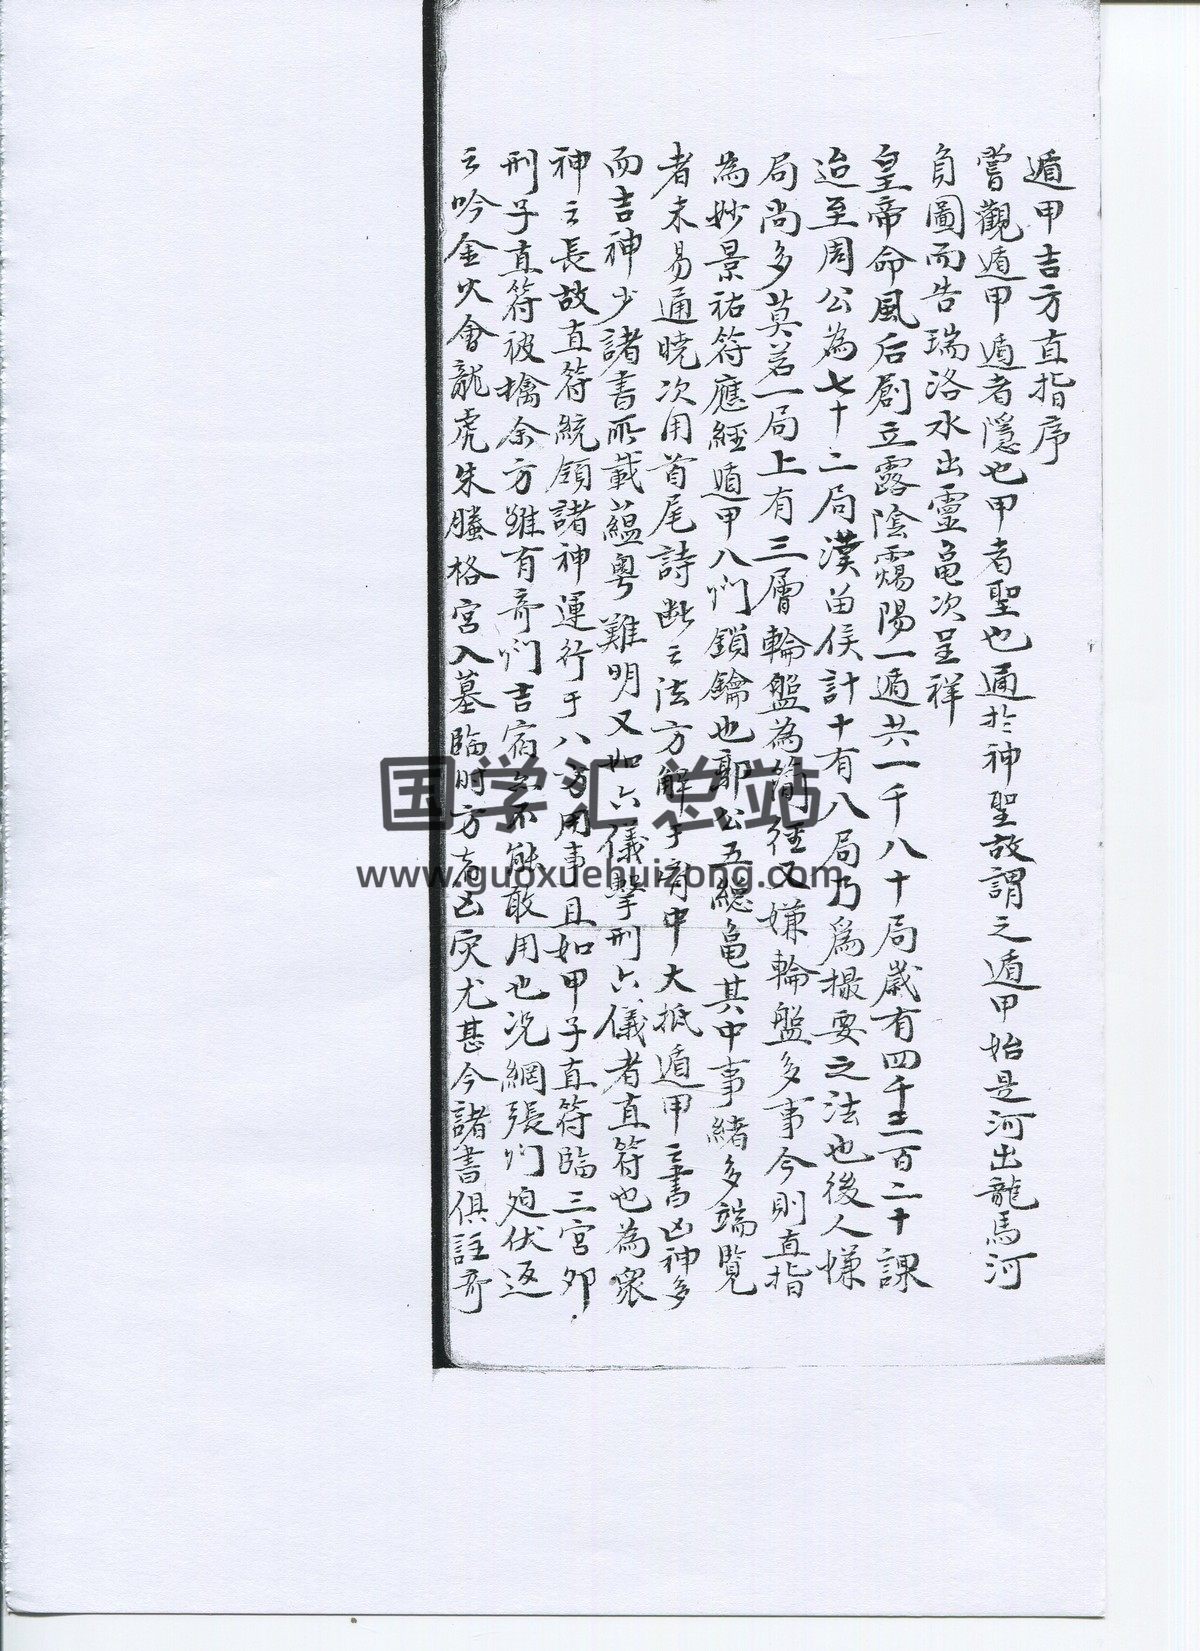 遁甲吉方直指序
嘗觀遁甲遁者隱也甲者聖也通於神聖故謂之遁甲始是河出龍馬河
負圖而告瑞洛水出靈龜次呈祥
皇帝命風后創立露陰霿陽一遁共一千八十局歲有四千三百二十課
迨至周公為七十二局漢留侯計十有八局乃為撮要之法也後人慊
局尚多莫若一局上有三層輪盤為簡徑又嫌輪盤多事今則直指
為妙景祐符應經遁甲八门鎖鑰也郭公五總龜其中事緒多端覽
者未易通曉次用首尾詩斷之法方解于胷中大抵遁甲之書凶神多
而吉神少諸書所載蘊粵難明又如六儀擊刑六儀者直符也為衆
神之長故直符統領諸神運行于八方用事且如甲子直符臨三宮卯
刑子直符被擒余方雖有奇门吉宿亦不能敢用也况網張门廹伏返
之吟金火會龍虎朱騰格宮入墓臨時方者凶灾尤甚今諸書俱註奇
国学汇总站
www.guoxuehuizong.com